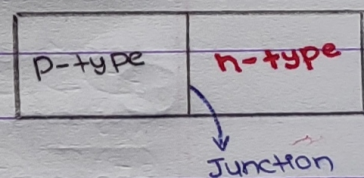 p-type n-type
Junction